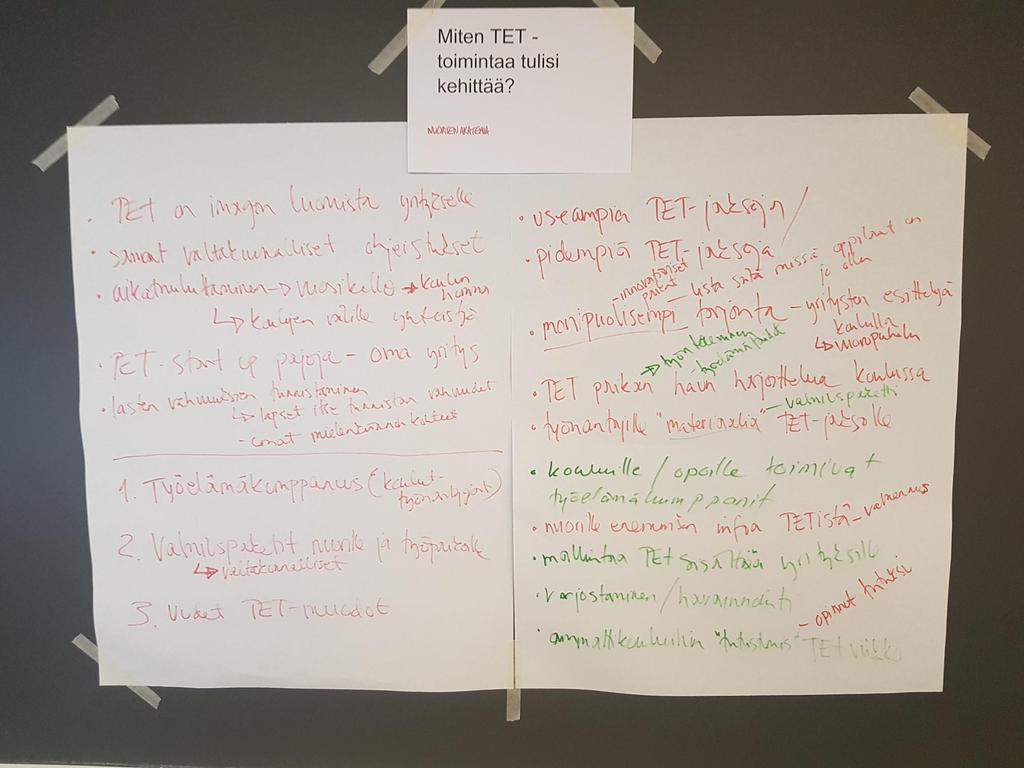 Miten TET -
toimintaa tulisi
kehittää?
NUORTEN AKATEMIA
• TET on imagon luomista yritykselle
• samat valtakunnalliset ohjeistukset
• aikatauluttaminen → vuosikello → koulun
↳ koulujen välille yhteistyö
• TET-start up pajoja - oma yritys
• lasten vahvuuksien tunnistaminen
↳ lapset itse tunnistan vahvuudet
- omat mielenkiinnon kohteet
1. Työelämäkumppanuus (koulut-
työnantajat)
2. Valmispaketit nuorille ja työpaikalle
↳ valtakunnalliset
3. Uudet TET-muodot
• useampia TET-jaksoja /
• pidempiä TET-jaksoja
innovatiiviset
paikat
- lista siitä missä oppilaat on
jo ollu
• monipuolisempi tarjonta - yritysten esittelyjä
koululla
↳ vuoropuhelu
→ työn tekeminen
• TET paikan haun harjoittelua koulussa
- valmispaketti
• työnantajille "materiaalia" TET-jaksolle
• kouluille / opoille toimivat
työelämäkumppanit
• nuorille enemmän infoa TETistä - valmennus
• mallintaa TET sisältöjä yrityksille
• varjostaminen / havainnointi
- opinnot tutuksi
• ammattikouluihin "tutustumis" TET viikko